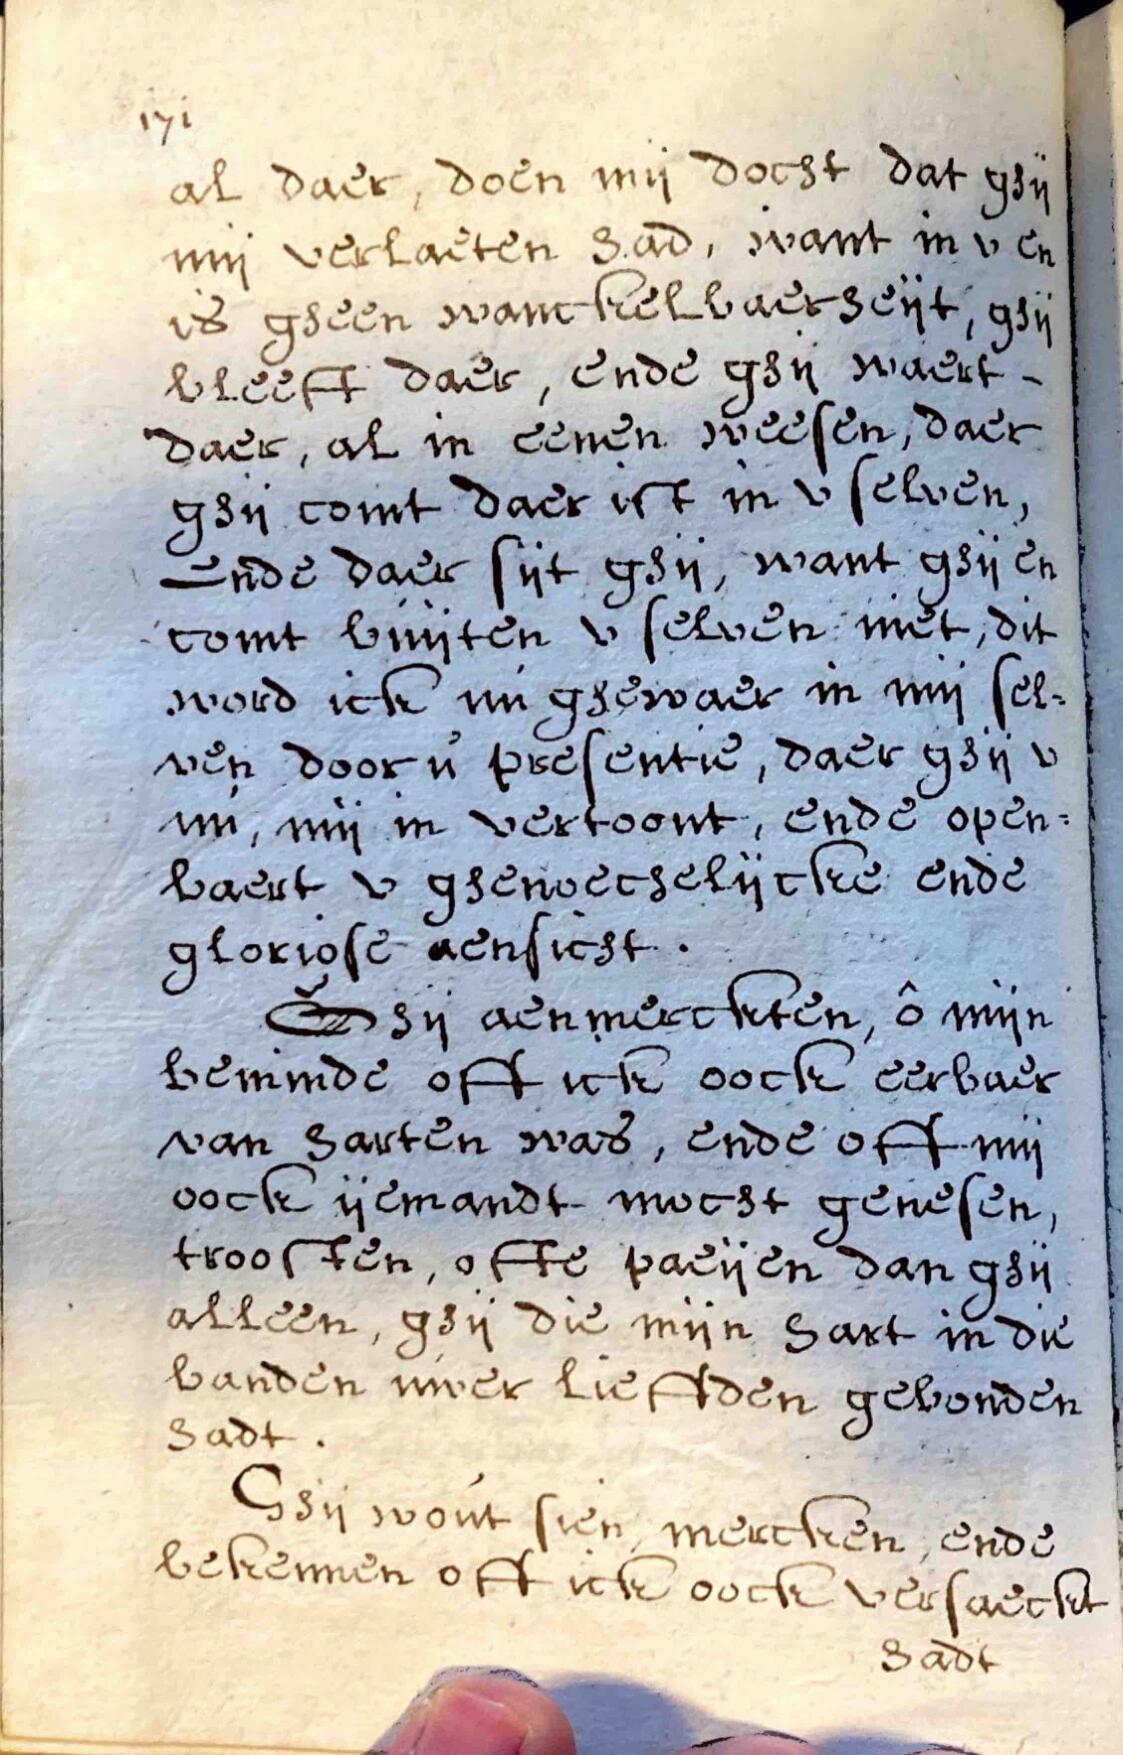 171
al daer, doen mij docht dat ghij
mij verlaeten had, want in v en
is gheen wanckelbaerheijt, ghij
bleeft daer, ende ghij waert -
daer, al in eenen weesen, daer
ghij comt daer ist in v selven,
Ende daer sijt ghij, want ghij en
comt buijten v selven niet, dit
word ick nú ghewaer in mij sel=
ven door ú presentie, daer ghij v
nú, mij in vertoont, ende open=
baert v ghenoechelijcke ende
gloriose aensicht.
Ghij aenmerckten, ô mijn
beminde off ick oock eerbaer
van harten was, ende off mij
oock ijemandt mocht genesen,
troosten, ofte paeijen dan ghij
alleen, ghij die mijn hart in die
banden úwer lieffden gebonden
hadt.
Ghij woút sien, mercken, ende
bekennen off ick oock versaeckt
hadt